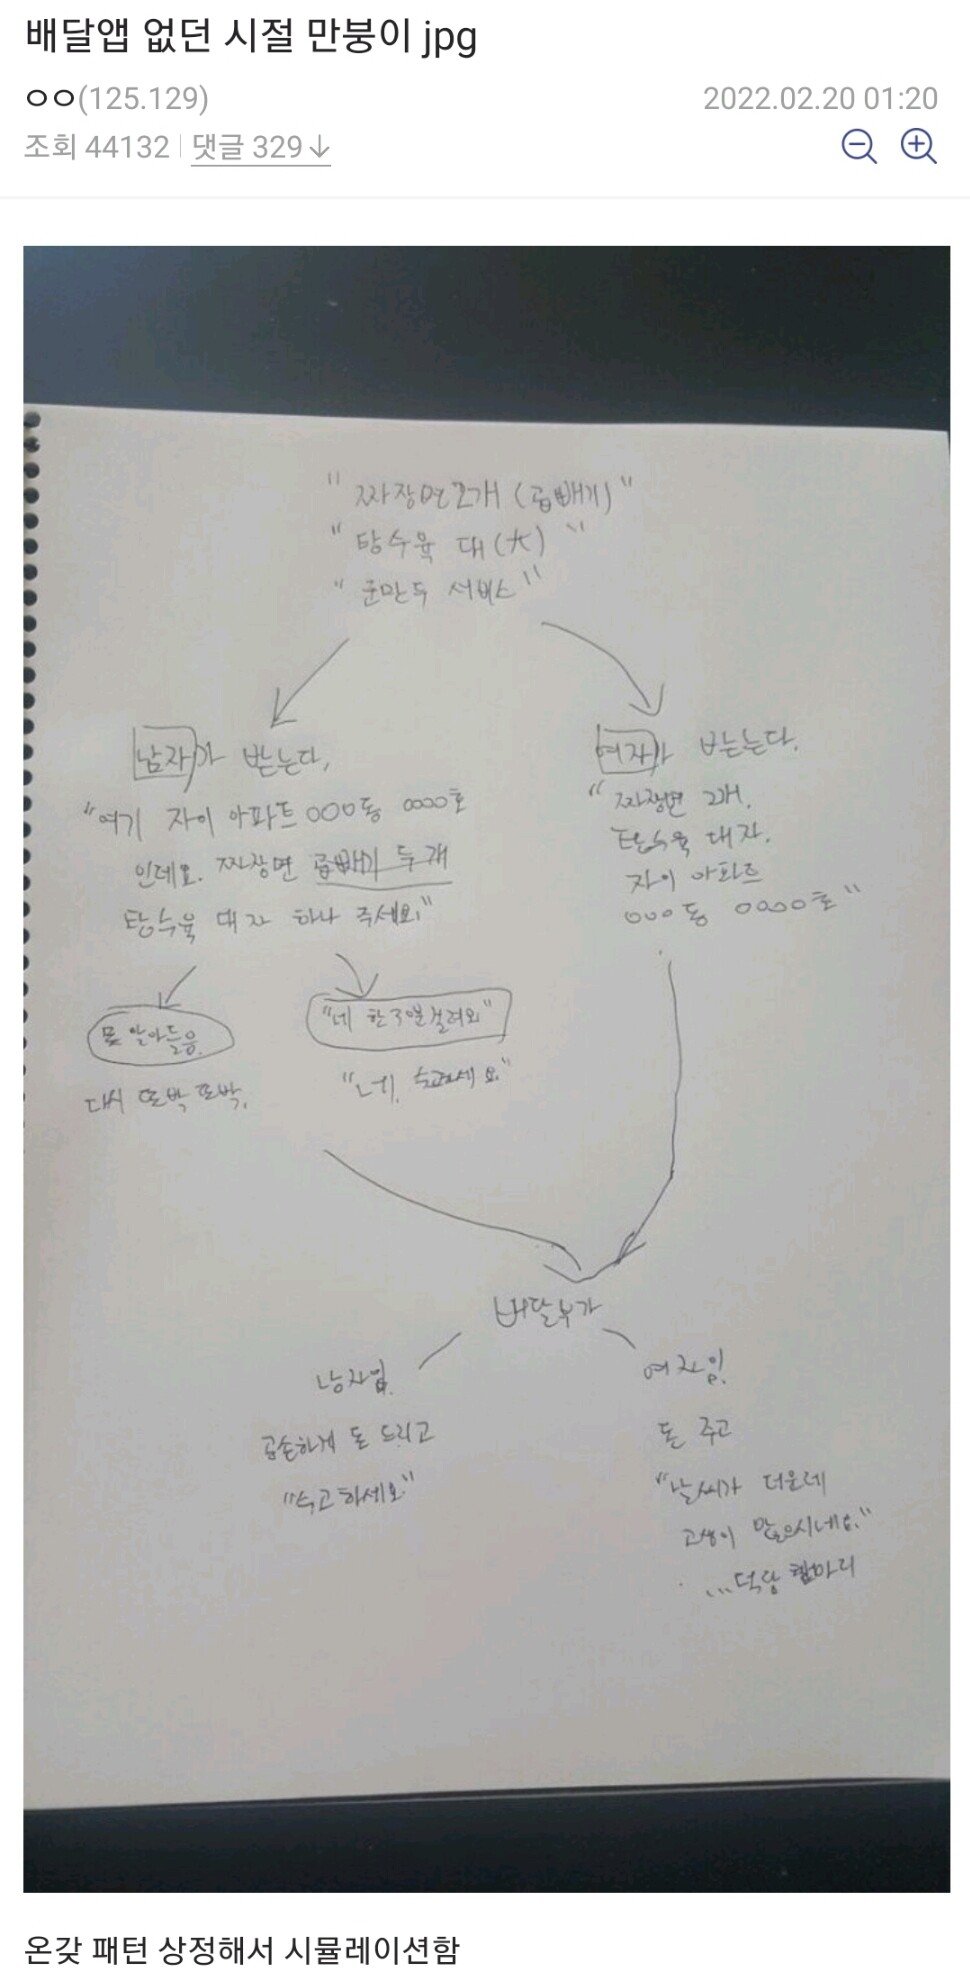 배달앱 없던 시절 만붕이 jpg
ㅇㅇ(125.129)
2022.02.20 01:20
조회 44132 댓글 329↓
"짜장면 2개 (곱빼기)"
"탕수육 대(大)"
"군만두 서비스"
남자가 받는다.
"여기 자이 아파트 000동 0000호
인데요. 짜장면 곱빼기 두 개
탕수육 대자 하나 주세요."
못 알아들음.
다시 또박 또박.
"네 한 30분 걸려요"
"네, 수고하세요."
여자가 받는다.
"짜장면 2개.
탕수육 대자.
자이 아파트
000동 0000호"
배달부가
남자임.
공손하게 돈 드리고
"수고하세요"
여자임.
돈 주고
"날씨가 더운데
고생이 많으시네요."
...덕담 한마디
온갖 패턴 상정해서 시뮬레이션함